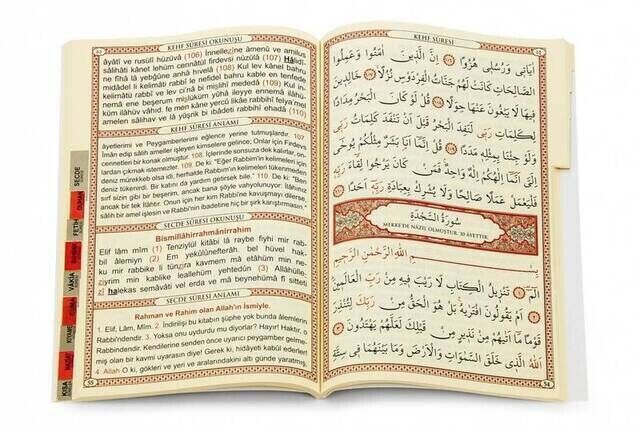 KEHF SÛRESİ OKUNUŞU
âyâtî ve rusulî hüzüvâ (106) İnnellezîne âmenû ve amilus
sâlihâti kânet lehüm cennâtül firdevsi nüzülâ (107) Hâlidî-
ne fîhâ lâ yebğûne anhâ hıvelâ (108) Kul lev kânel bahru
midâdel li kelimâti rabbî le nefidel bahru kable en tenfede
kelimâtü rabbî ve lev ci'nâ bi mislihî mededâ (109) Kul in-
nemâ ene beşerum mislüküm yûhâ ileyye ennemâ ilâhü-
küm ilâhüv vâhid, fe men kâne yercû likâe rabbihî felya'mel
amelen sâlihav ve lâ yüşrik bi ibâdeti rabbihî ehadâ (110)
KEHF SÛRESİ ANLAMI
âyetlerimi ve Peygamberlerimi eğlence yerine tutmuşlardır. 107.
İman edip sâlih ameller işleyen kimselere gelince; Onlar için Firdevs
cennetleri bir konak olmuştur. 108. İçlerinde sonsuza dek kalırlar, on-
lardan çıkmak istemezler. 109. De ki: "Eğer Rabbim'in kelimeleri için
deniz mürekkeb olsa idi, herhalde Rabbim'in kelimeleri tükenmeden
deniz tükenirdi. Bir katını da yardım getirsek bile." 110. De ki: "Ben
sırf sizin gibi bir beşerim, ancak bana şöyle vahyolunuyor: İlâhınız
ancak bir tek İlâhtır. Onun için her kim Rabbi'ne kavuşmayı dilerse,
sâlih bir amel işlesin ve Rabbi'nin ibadetine hiç bir şirk karıştırmasın."
SECDE SÛRESİ OKUNUŞU
Bismillâhirrahmânirrahîm
Elif lâm mîm (1) Tenzîlül kitâbi lâ raybe fîhi mir rab-
bil âlemîyn (2) Em yekûlûnefterâh, bel hüvel hak-
ku mir rabbike li tünzira kavmem mâ etâhüm min ne-
ziyrim min kablike leallehüm yehtedûn (3) Allâhülle-
zî halekas semâvâti vel erda ve mâ beynehümâ fî sitteti
SECDE SÛRESİ ANLAMI
Rahman ve Rahim olan Allah'ın İsmiyle.
1. Elif, Lâm, Mîm. 2. İndirilişi bu kitabın şüphe yok bunda âlemlerin
Rabbi'ndendir. 3. Yoksa onu uydurdu mu diyorlar? Hayır! Haktır, o
Rabbi'ndendir. Kendilerine senden önce uyarıcı peygamber gelme-
miş olan bir kavmi uyarasın diye! Gerek ki, hidâyeti kabul ederler!
4. Allah O ki, gökleri ve yeri ve aralarındakini altı günde yaratmış,
SECDE
DUHAN
FETH
VÂKIA
KIYAME
KISA
KEHF SÛRESİ
اٰيَاتٖي وَرُسُلٖي هُزُوًا ﴿١٠٦﴾ اِنَّ الَّذٖينَ اٰمَنُوا وَعَمِلُوا
الصَّالِحَاتِ كَانَتْ لَهُمْ جَنَّاتُ الْفِرْدَوْسِ نُزُلًا ﴿١٠٧﴾ خَالِدٖينَ
فٖيهَا لَا يَبْغُونَ عَنْهَا حِوَلًا ﴿١٠٨﴾ قُلْ لَوْ كَانَ الْبَحْرُ مِدَادًا
لِكَلِمَاتِ رَبّٖي لَنَفِدَ الْبَحْرُ قَبْلَ اَنْ تَنْفَدَ كَلِمَاتُ رَبّٖي
وَلَوْ جِئْنَا بِمِثْلِهٖ مَدَدًا ﴿١٠٩﴾ قُلْ اِنَّمَا اَنَا بَشَرٌ مِثْلُكُمْ يُوحٰى
اِلَيَّ اَنَّمَا اِلٰهُكُمْ اِلٰهٌ وَاحِدٌ فَمَنْ كَانَ يَرْجُوا لِقَاءَ رَبِّهٖ
فَلْيَعْمَلْ عَمَلًا صَالِحًا وَلَا يُشْرِكْ بِعِبَادَةِ رَبِّهٖ اَحَدًا ﴿١١٠﴾
سُورَةُ السَّجْدَةِ
MEKKE'DE NÂZİL OLMUŞTUR. 30 ÂYETTİR.
بِسْمِ اللّٰهِ الرَّحْمٰنِ الرَّحٖيمِ
الٓمٓ ﴿١﴾ تَنْزٖيلُ الْكِتَابِ لَا رَيْبَ فٖيهِ مِنْ رَبِّ الْعَالَمٖينَ ﴿٢﴾
اَمْ يَقُولُونَ افْتَرٰيهُ بَلْ هُوَ الْحَقُّ مِنْ رَبِّكَ لِتُنْذِرَ
قَوْمًا مَا اَتٰيهُمْ مِنْ نَذٖيرٍ مِنْ قَبْلِكَ لَعَلَّهُمْ يَهْتَدُونَ ﴿٣﴾
اَللّٰهُ الَّذٖي خَلَقَ السَّمٰوَاتِ وَالْاَرْضَ وَمَا بَيْنَهُمَا فٖي سِتَّةِ
55
54